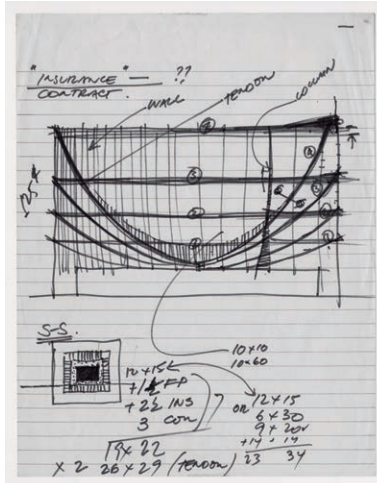 "INSURANCE" — ??
CONTRACT.
WALL
TENDON
COLUMN
S-S.
10×10
10×60
12×15
+2½ INS
3 COL
19×22
×2 26×29 (TENDON)
OR 12×15
6×30
9×20
+14 - 14
23 34